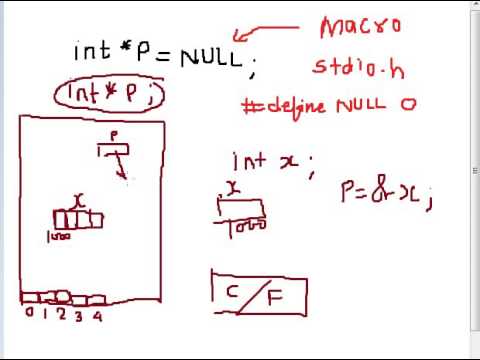 int *P = NULL;
Macro
stdio.h
#define NULL 0
int * P;
P
x
1000
0 1 2 3 4
int x;
x
1000
P=&x;
C/F